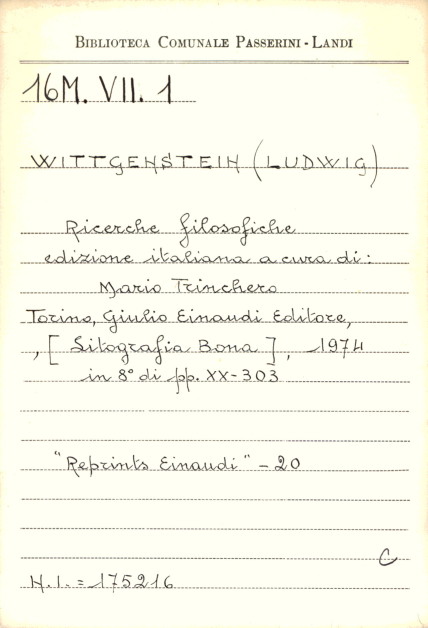 BIBLIOTECA COMUNALE PASSERINI-LANDI
16M. VII. 1
WITTGENSTEIN (LUDWIG)
Ricerche filosofiche
edizione italiana a cura di:
Mario Trinchero
Torino, Giulio Einaudi Editore,
, [Litografia Bona], 1974
in 8° di pp. XX-303
"Reprints Einaudi" - 20
C
N.I. = 175216